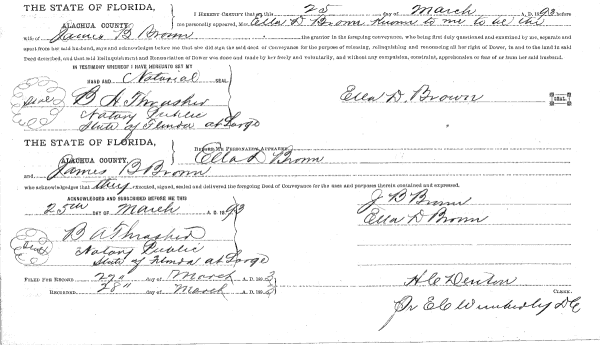 THE STATE OF FLORIDA,
ALACHUA COUNTY.
I HEREBY CERTIFY that on this 25 day of March A. D. 1893 before
me personally appeared, Mrs. Ella D Brown known to me to be the
wife of James B Brown the grantor in the foregoing conveyance, who being first duly questioned and examined by me, separate and
apart from her said husband, says and acknowledges before me that she did sign the said deed or Conveyance for the purpose of releasing, relinquishing and renouncing all her right of Dower, in and to the land in said
Deed described, and that said Relinquishment and Renunciation of Dower was done and made by her freely and voluntarily, and without any compulsion, constraint, apprehension or fear of or from her said husband.
IN TESTIMONY WHEREOF I HAVE HEREUNTO SET MY
HAND AND Notarial SEAL
Seal
B A Thrasher
Notary Public
State of Florida at Large
Ella D. Brown
SEAL
THE STATE OF FLORIDA,
ALACHUA COUNTY
BEFORE ME PERSONALLY APPEARED
Ella D Brown
and James B Brown
who acknowledges that they executed, signed, sealed and delivered the foregoing Deed of Conveyance for the uses and purposes therein contained and expressed.
ACKNOWLEDGED AND SUBSCRIBED BEFORE ME THIS
25th DAY OF March A. D. 1893
J B Brown
Ella D Brown
Seal
B A Thrasher
Notary Public
State of Florida at Large
FILED FOR RECORD 27" day of March A. D. 1893
RECORDED 28" day of March A. D. 1893
H C Denton
CLERK
Pr E C Wimberly D C